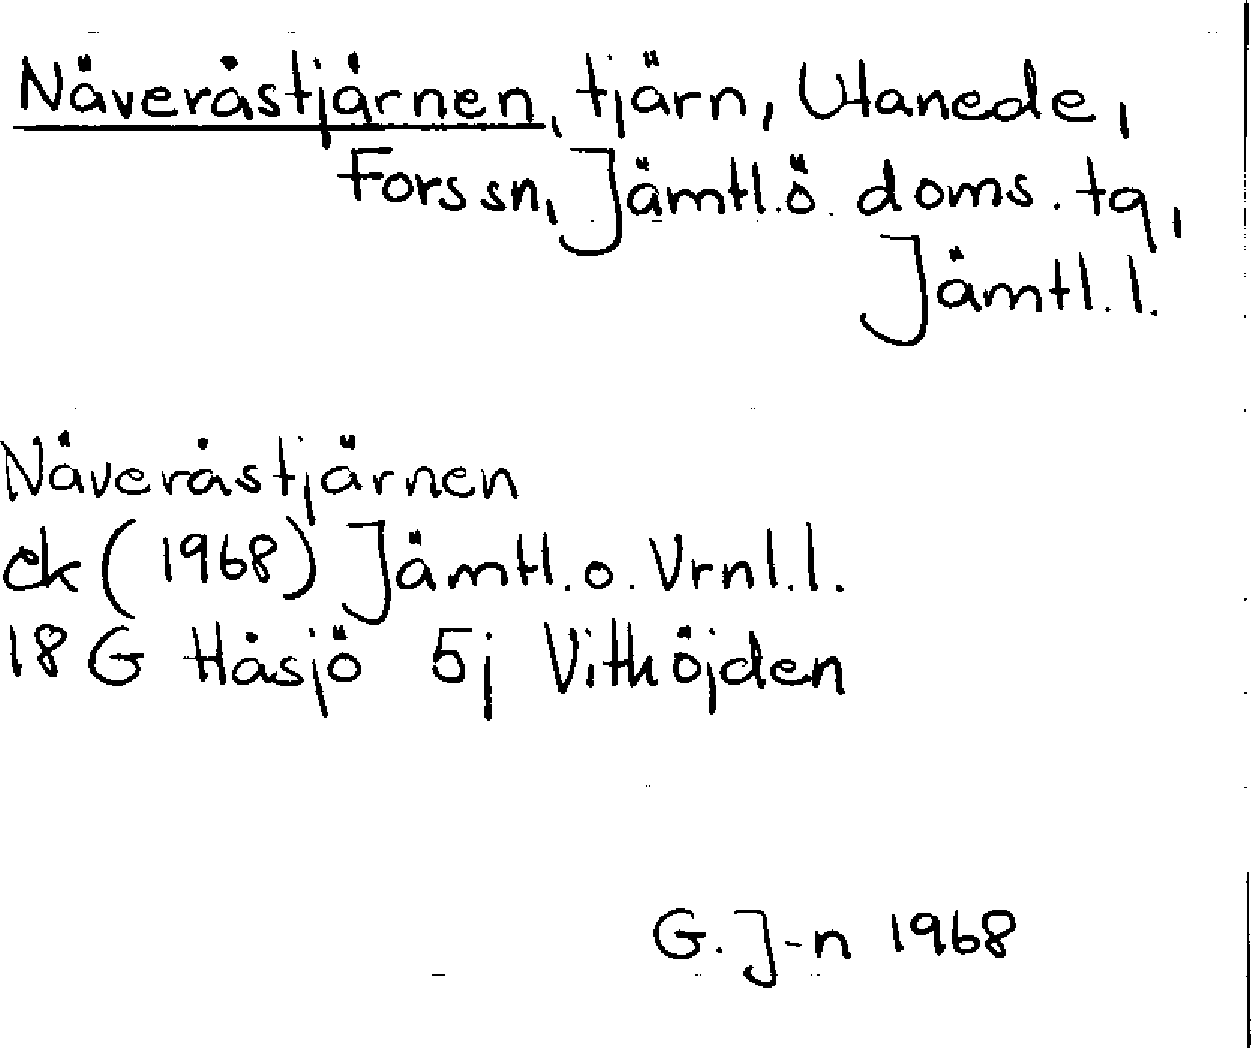 Näveråstjärnen, tjärn, Utanede,
Fors sn, Jämtl. ö. doms. tg,
Jämtl. l.
Näveråstjärnen
ek (1968) Jämtl. o. Vrnl. l.
18 G Håsjö 5j Vithöjden
G. J-n 1968